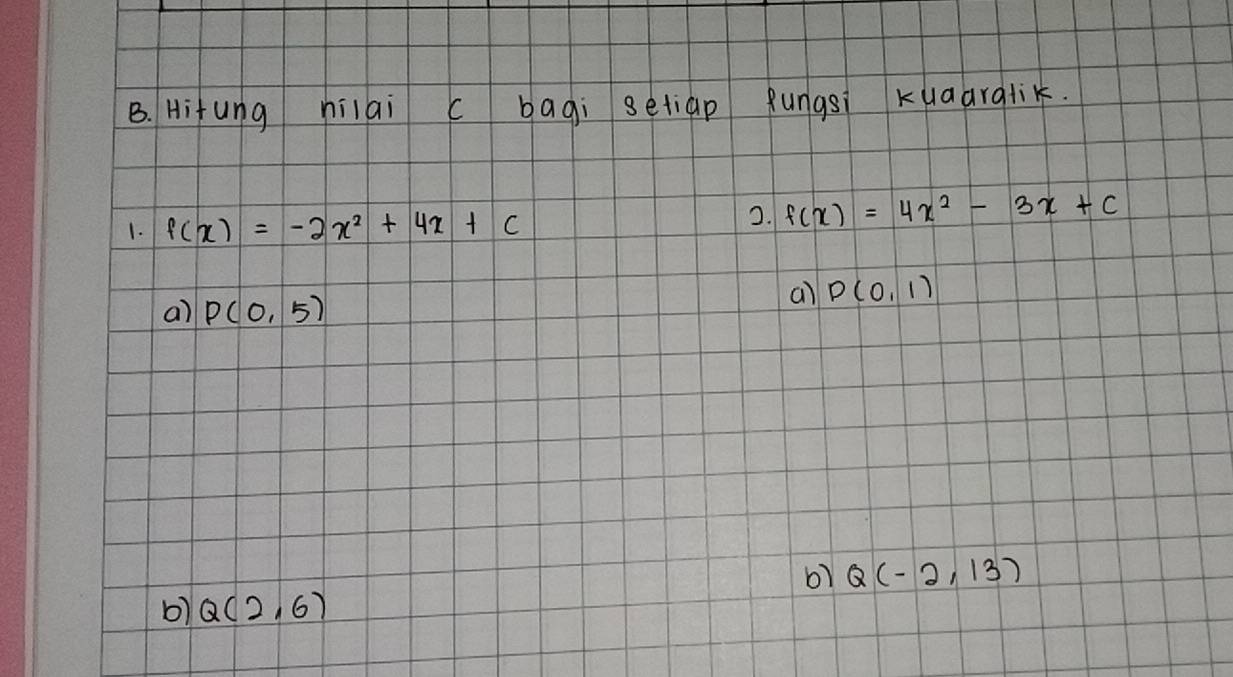 B. Hitung nilai c bagi setiap fungsi kuadratik.
1. f(x) = -2x² + 4x + c
2. f(x) = 4x² - 3x + c
a) P(0, 5)
a) P(0, 1)
b) Q(2, 6)
b) Q(-2, 13)